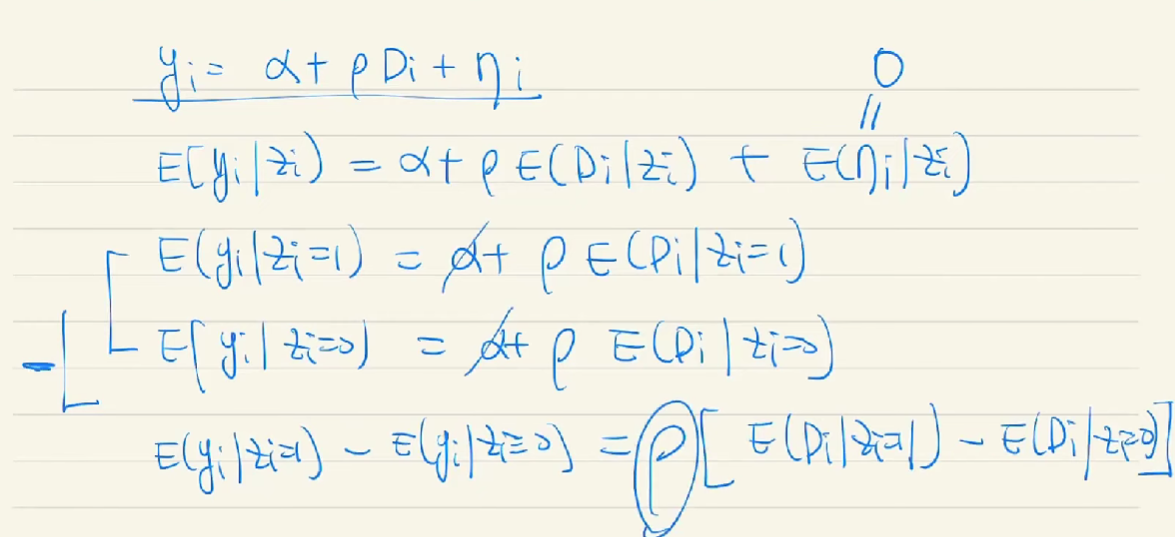 yi = α + ρ Di + ηi
0
||
E[yi|zi) = α + ρ E(Di|zi) + E(ηi|zi)
E(yi|zi=1) = α + ρ E(Di|zi=1)
E[yi|zi=0) = α + ρ E(Di|zi=0)
-
E(yi|zi=1) - E(yi|zi=0) = ρ [ E(Di|zi=1) - E(Di|zi=0)]